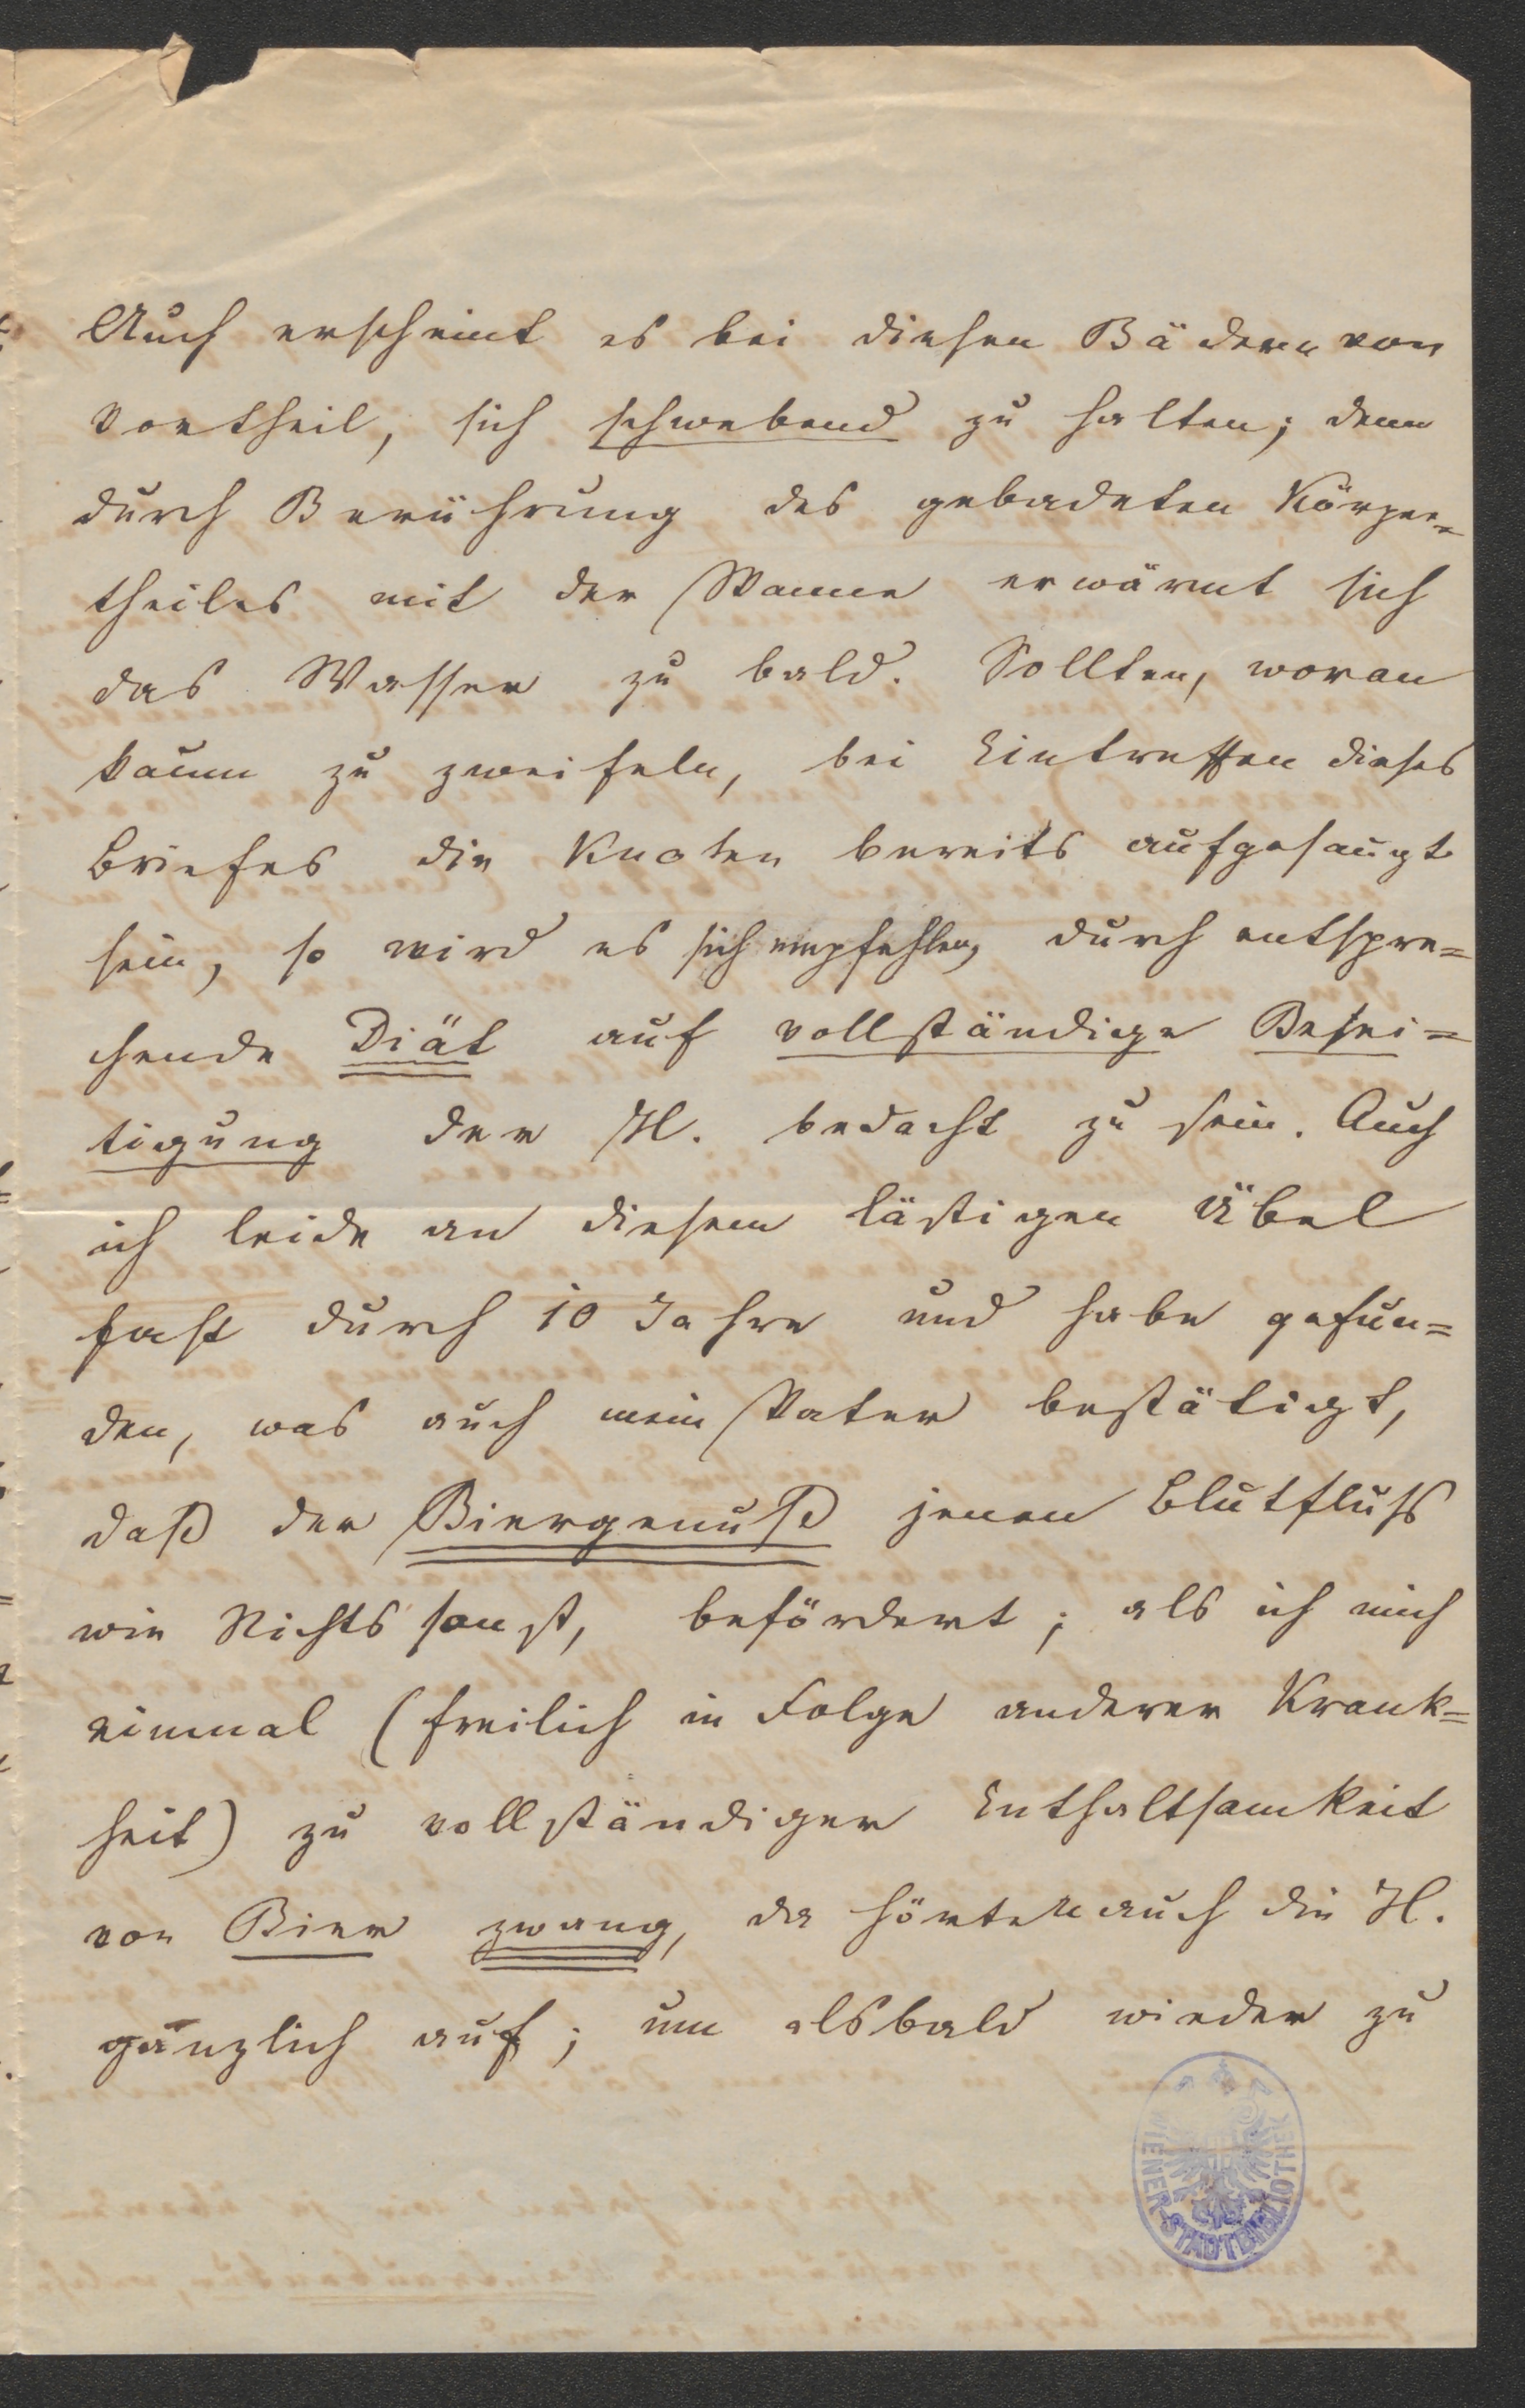 Auch erscheint es bei diesen Bädern von
Vortheil, sich schwebend zu halten; denn
durch Berührung des gebadeten Körper=
theiles mit der Wanne erwärmt sich
das Wasser zu bald. Sollten, woran
kaum zu zweifeln, bei Eintreffen dieses
Briefes die Knoten bereits aufgesaugt
sein, so wird es sich empfehlen, durch entspre=
chende Diät auf vollständige Besei=
tigung der H. bedacht zu sein. Auch
ich leide an diesem lästigen Übel
fast durch 10 Jahre und habe gefun=
den, was auch mein Vater bestätigt,
daß der Biergenuß jenen Blutfluß
wie Nichts sonst, befördert; als ich mich
einmal (freilich in Folge anderer Krank=
heit) zu vollständiger Enthaltsamkeit
von Bier zwang, da hörten auch die H.
gänzlich auf; um alsbald wieder zu
WIENER STADTBIBLIOTHEK